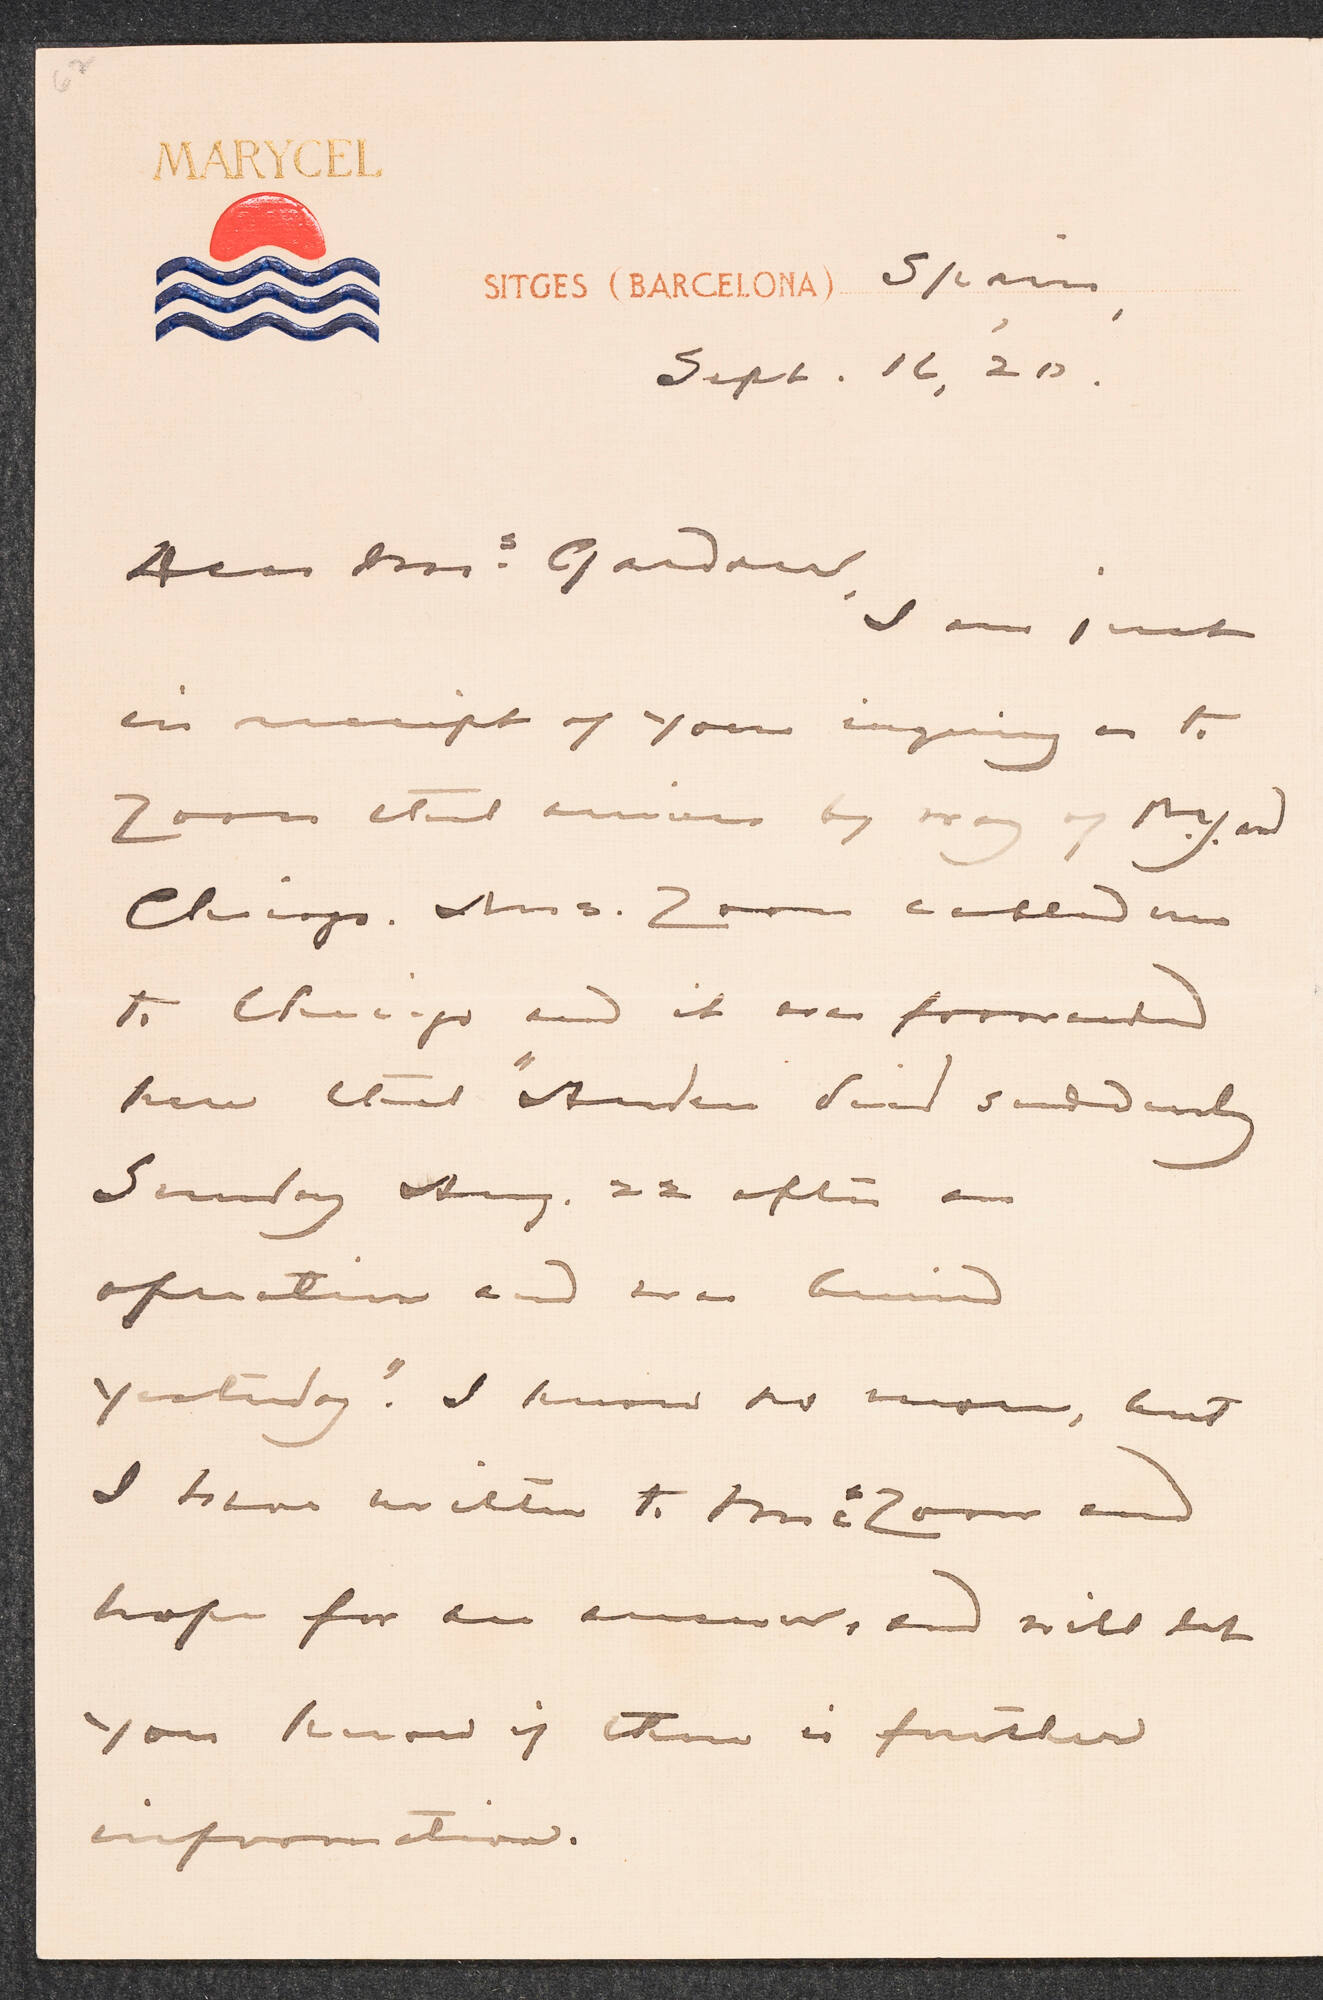 62
MARYCEL
SITGES (BARCELONA) Spain,
Sept. 16, '20.
Dear Mrs. Gardner,
I am just
in receipt of your inquiry as to
Zorn that arrives by way of N.Y. and
Chicago. Mrs. Zorn cabled me
to Chicago and it was forwarded
here that "Anders died suddenly
Sunday Aug. 22 after an
operation and was buried
yesterday". I know no more, but
I have written to Mrs. Zorn and
hope for an answer, and will let
you know if there is further
information.